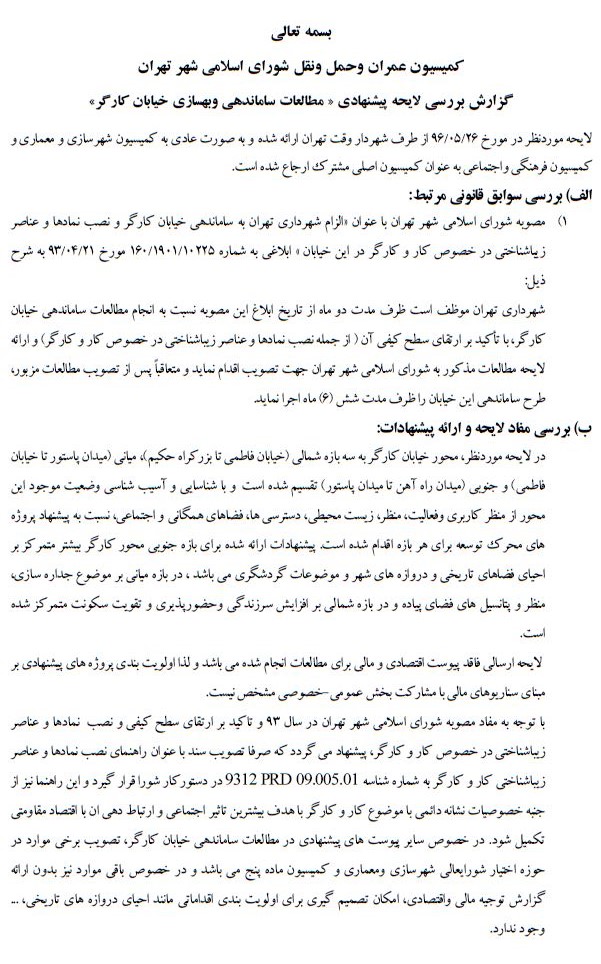 بسمه تعالی
کمیسیون عمران وحمل ونقل شورای اسلامی شهر تهران
گزارش بررسی لایحه پیشنهادی « مطالعات ساماندهی وبهسازی خیابان کارگر»
لایحه موردنظر در مورخ ۹۶/۰۵/۲۶ از طرف شهردار وقت تهران ارائه شده و به صورت عادی به کمیسیون شهرسازی و معماری و
کمیسیون فرهنگی واجتماعی به عنوان کمیسیون اصلی مشترک ارجاع شده است.
الف) بررسی سوابق قانونی مرتبط:
۱) مصوبه شورای اسلامی شهر تهران با عنوان «الزام شهرداری تهران به ساماندهی خیابان کارگر و نصب نمادها و عناصر
زیباشناختی در خصوص کار و کارگر در این خیابان » ابلاغی به شماره ۱۶۰/۱۹۰۱/۱۰۲۲۵ مورخ ۹۳/۰۴/۲۱ به شرح
ذیل:
شهرداری تهران موظف است ظرف مدت دو ماه از تاریخ ابلاغ این مصوبه نسبت به انجام مطالعات ساماندهی خیابان
کارگر، با تأکید بر ارتقای سطح کیفی آن ( از جمله نصب نمادها و عناصر زیباشناختی در خصوص کار و کارگر) و ارائه
لایحه مطالعات مذکور به شورای اسلامی شهر تهران جهت تصویب اقدام نماید و متعاقباً پس از تصویب مطالعات مزبور،
طرح ساماندهی این خیابان را ظرف مدت شش (۶) ماه اجرا نماید.
ب) بررسی مفاد لایحه و ارائه پیشنهادات:
در لایحه موردنظر، محور خیابان کارگر به سه بازه شمالی (خیابان فاطمی تا بزرکراه حکیم)، میانی (میدان پاستور تا خیابان
فاطمی) و جنوبی (میدان راه آهن تا میدان پاستور) تقسیم شده است و با شناسایی و آسیب شناسی وضعیت موجود این
محور از منظر کاربری وفعالیت، منظر، زیست محیطی، دسترسی ها، فضاهای همگانی و اجتماعی، نسبت به پیشنهاد پروژه
های محرک توسعه برای هر بازه اقدام شده است. پیشنهادات ارائه شده برای بازه جنوبی محور کارگر بیشتر متمرکز بر
احیای فضاهای تاریخی و دروازه های شهر و موضوعات گردشگری می باشد ، در بازه میانی بر موضوع جداره سازی،
منظر و پتانسیل های فضای پیاده و در بازه شمالی بر افزایش سرزندگی وحضورپذیری و تقویت سکونت متمرکز شده
است.
لایحه ارسالی فاقد پیوست اقتصادی و مالی برای مطالعات انجام شده می باشد و لذا اولویت بندی پروژه های پیشنهادی بر
مبنای سناریوهای مالی با مشارکت بخش عمومی-خصوصی مشخص نیست.
با توجه به مفاد مصوبه شورای اسلامی شهر تهران در سال ۹۳ و تاکید بر ارتقای سطح کیفی و نصب نمادها و عناصر
زیباشناختی در خصوص کار و کارگر، پیشنهاد می گردد که صرفا تصویب سند با عنوان راهنمای نصب نمادها و عناصر
زیباشناختی کار و کارگر به شماره شناسه 9312 PRD 09.005.01 در دستورکار شورا قرار گیرد و این راهنما نیز از
جنبه خصوصیات نشانه دائمی با موضوع کار و کارگر با هدف بیشترین تاثیر اجتماعی و ارتباط دهی ان با اقتصاد مقاومتی
تکمیل شود. در خصوص سایر پیوست های پیشنهادی در مطالعات ساماندهی خیابان کارگر، تصویب برخی موارد در
حوزه اختیار شورایعالی شهرسازی ومعماری و کمیسیون ماده پنج می باشد و در خصوص باقی موارد نیز بدون ارائه
گزارش توجیه مالی واقتصادی، امکان تصمیم گیری برای اولویت بندی اقداماتی مانند احیای دروازه های تاریخی، ...
وجود ندارد.